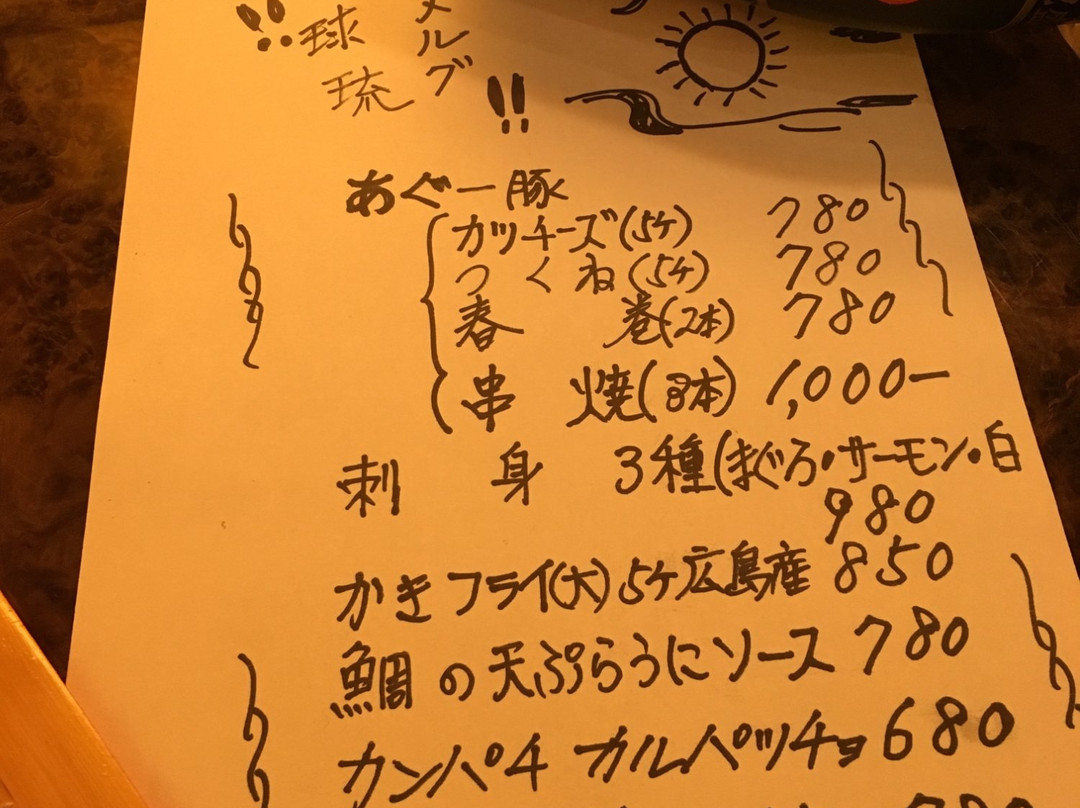 !!球琉
メルグ!!
あぐー豚
カツチーズ(5ケ) 780
つくね(5ケ) 780
春巻(2本) 780
串焼(3本) 1,000ー
刺身 3種(まぐろ・サーモン・白
980
かきフライ(大)5ケ広島産 850
鯛の天ぷらうにソース 780
カンパチカルパッチョ 680